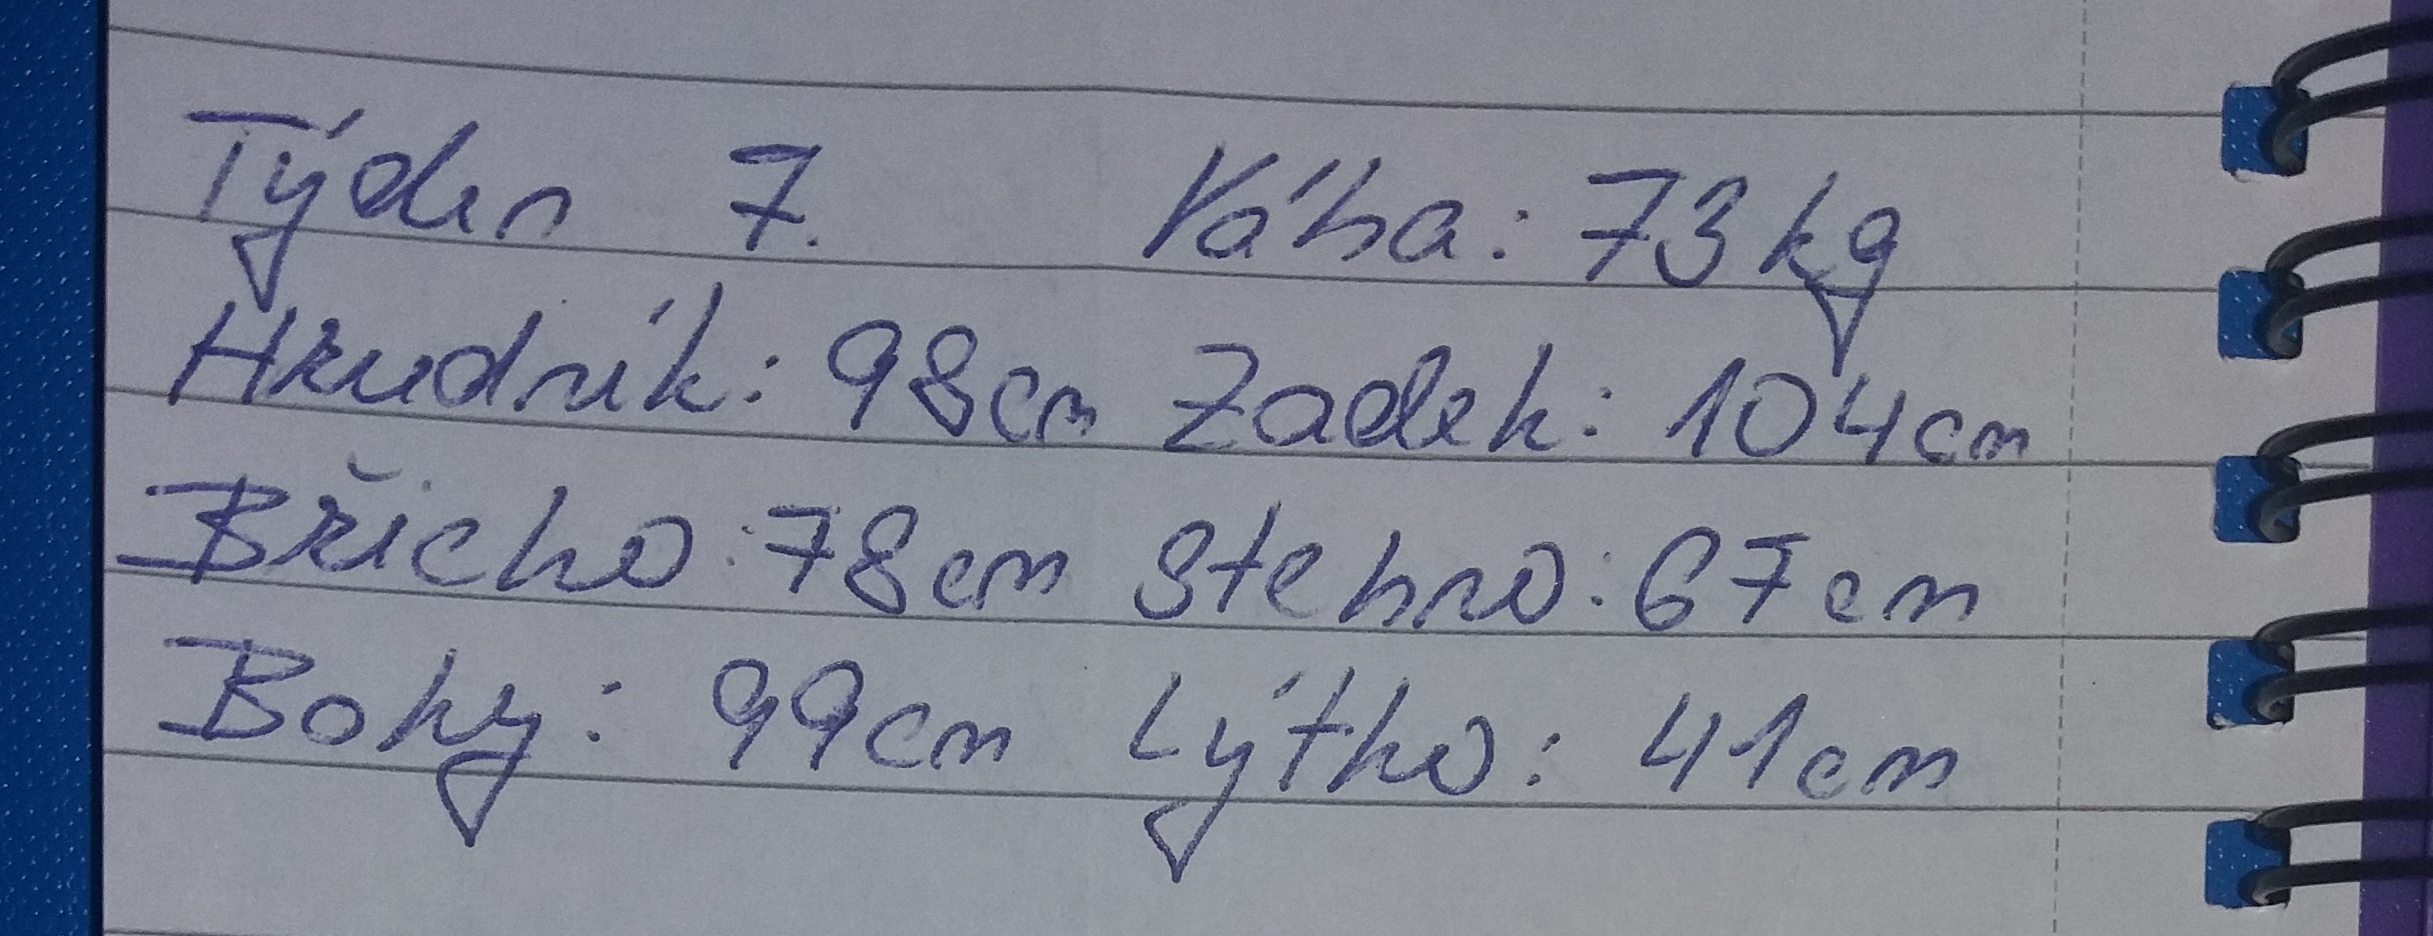 Týden 7. Váha: 73kg
Hrudník: 98cm Zadek: 104cm
Břicho: 78cm Stehno: 67cm
Boky: 99cm Lýtko: 41cm